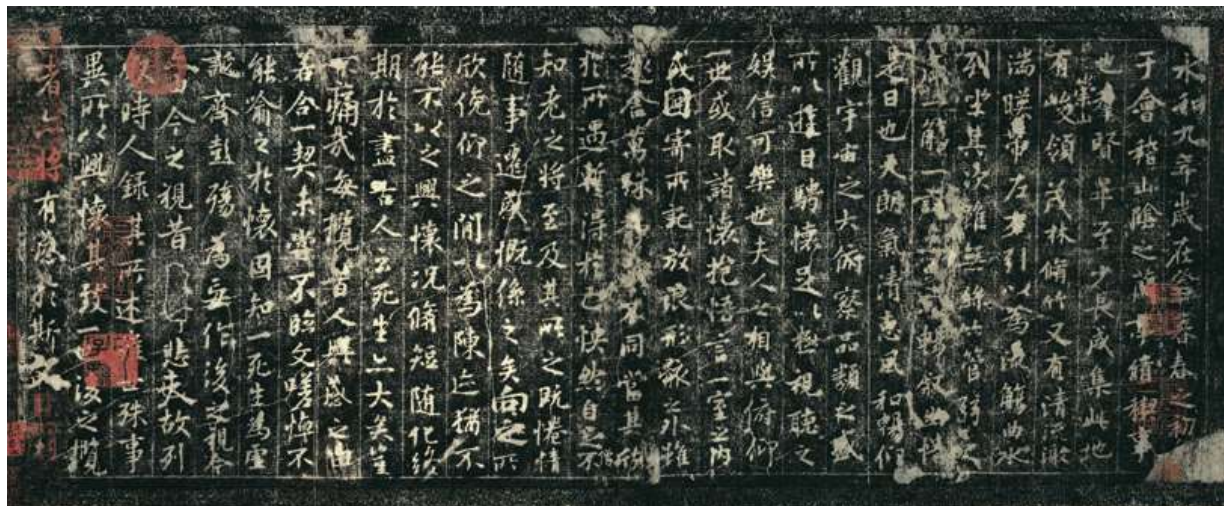 永和九年歲在癸丑暮春之初
于會稽山陰之蘭亭脩稧事
也羣賢畢至少長咸集此地
有崇山峻領茂林脩竹又有清流激
湍暎帶左右引以為流觴曲水
列坐其次雖無絲竹管弦之
盛一觴一詠亦足以暢敘幽情
是日也天朗氣清惠風和暢仰
觀宇宙之大俯察品類之盛
所以遊目騁懷足以極視聽之
娛信可樂也夫人之相與俯仰
一世或取諸懷抱悟言一室之內
或因寄所託放浪形骸之外雖
趣舍萬殊靜躁不同當其欣
於所遇暫得於己快然自足不
知老之將至及其所之既惓情
隨事遷感慨係之矣向之所
欣俛仰之間以為陳迹猶不
能不以之興懷況脩短隨化終
期於盡古人云死生亦大矣豈
不痛哉每攬昔人興感之由
若合一契未嘗不臨文嗟悼不
能喻之於懷固知一死生為虛
誕齊彭殤為妄作後之視今
今之視昔悲夫故列
時人錄其所述雖世殊事
異所以興懷其致一也後之攬
者亦將有感於斯文